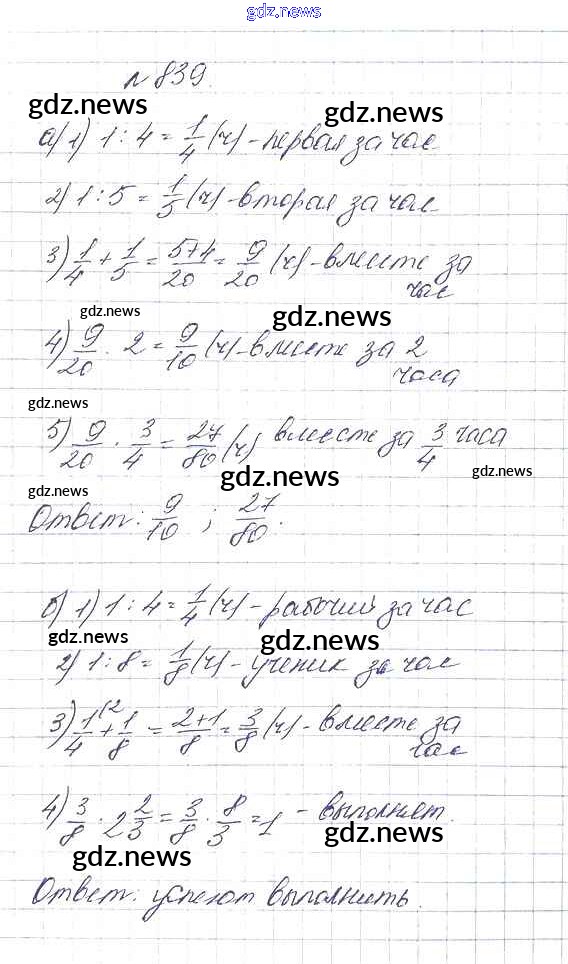 gdz.news
№ 839.
gdz.news
gdz.news
а) 1) 1 : 4 = 1/4 (ч) - первая за час
2) 1 : 5 = 1/5 (ч) - вторая за час
3) 1/4 + 1/5 = 5+4/20 = 9/20 (ч) - вместе за
час
gdz.news
gdz.news
4) 9/20 · 2 = 9/10 (ч) - вместе за 2
часа
gdz.news
5) 9/20 · 3/4 = 27/80 (ч) вместе за 3/4 часа
gdz.news
gdz.news
gdz.news
Ответ: 9/10 ; 27/80.
б) 1) 1 : 4 = 1/4 (ч) - рабочий за час
gdz.news
gdz.news
2) 1 : 8 = 1/8 (ч) - ученик за час
3) 1/4 (2 + 1/8 = 2+1/8 = 3/8 (ч) - вместе за
час
4) 3/8 · 2 2/3 = 3/8 · 8/3 = 1 - выполняет.
gdz.news
gdz.news
Ответ: успеют выполнить.
gdz.news